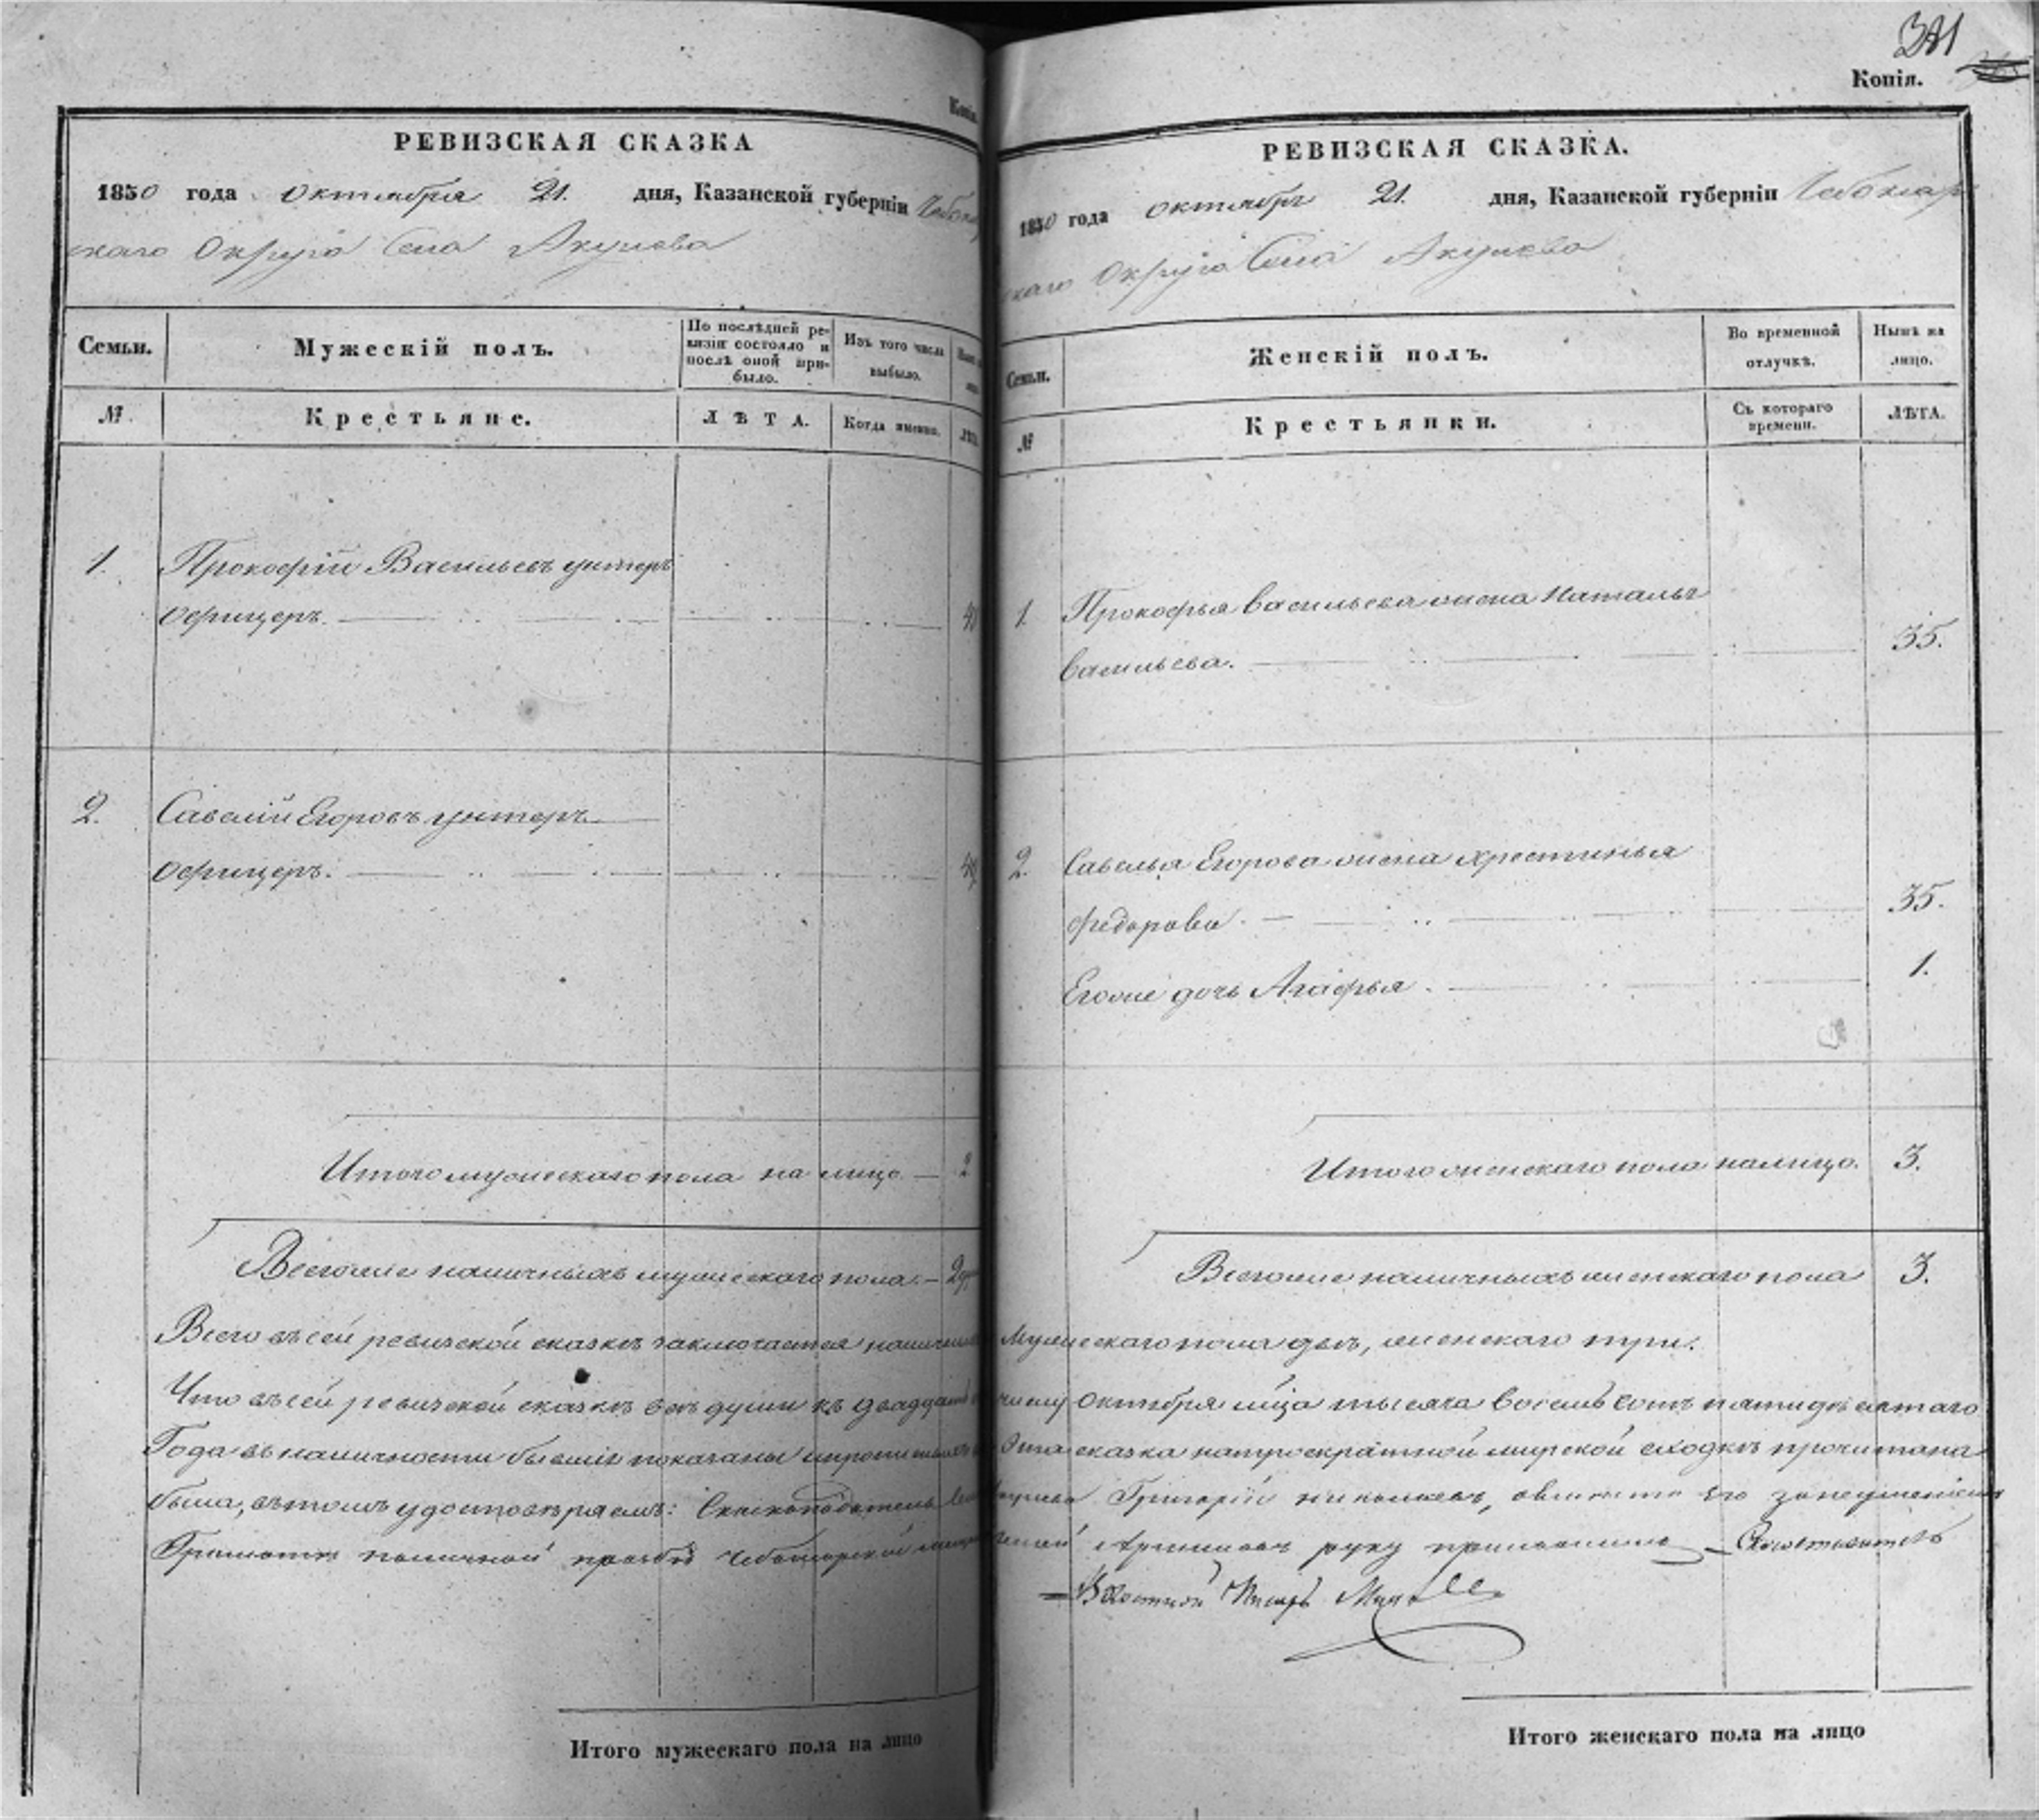 Копія.
РЕВИЗСКАЯ СКАЗКА
1850 года октября 21. дня, Казанской губерніи Чебокса
скаго Округа Села Акулева
Семьи.
Мужескій полъ.
По послѣдней ре-
визіи состояло и
послѣ оной при-
было.
Изъ того числа
выбыло.
№
Крестьяне.
ЛѢТА.
Когда именно.
1. Прокофій Васильевъ унтеръ
офицеръ.
2. Савелій Егоровъ унтеръ
офицеръ.
Итого мужескаго пола на лицо — 2
Всегоже наличныхъ мужескаго пола. — 2
Итого мужескаго пола на лицо
341
Копія.
РЕВИЗСКАЯ СКАЗКА.
1850 года октября 21. дня, Казанской губерніи Чебоксар
скаго Округа Села Акулева
Семьи.
Женскій полъ.
Во временной
отлучкѣ.
Нынѣ на
лицо.
№
Крестьянки.
Съ котораго
времени.
ЛѢТА.
1. Прокофья Васильева жена Наталья
Васильева. 35.
2. Савелья Егорова жена Хрестинья
Федорова. 35.
Егоже дочь Агафья. 1.
Итого женскаго пола налицо. 3.
Всегоже наличныхъ женскаго пола 3.
Всего въ сей ревизской сказкѣ заключается мужескаго пола двѣ, женскаго три.
Что въ сей ревизской сказкѣ всѣ души къ октября мѣца тысяча восемь сотъ пятидесятаго
Года въ наличности бывшія показаны и сказка на троекратной мирской сходкѣ прочитана
была, въ томъ удостовѣряемъ: Сказкоподатель Григорій Николаевъ, а вмѣсто его за неумѣніемъ
Грамотѣ по личной прозбѣ Чебоксарской руку приложилъ —
— Волостной Писарь
Итого женскаго пола на лицо